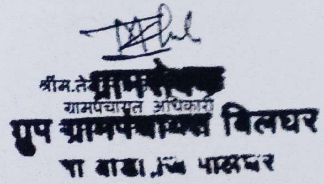 श्रीम.ते
ग्रामसेवक
ग्रामपंचायत अधिकारी
ग्रुप ग्रामपंचायत बिलघर
ता वाडा जि पालघर